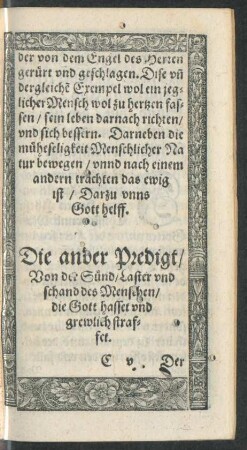 der von dem Engel des Herren
gerürt vnd geschlagen. Dise vñ
dergleichẽ Exempel wol ein jeg⸗
licher Mensch wol zu hertzen fas⸗
sen / sein leben darnach richten /
vnd sich bessern. Darneben die
müheseligkeit Menschlicher Na
tur bewegen / vnnd nach einem
andern trachten das ewig
ist / Darzu vnns
Gott helff.
Die ander Predigt /
Von der Sünd / Laster vnd
schand des Menschen /
die Gott hasset vnd
grewlich straf⸗
fet.
C v Der